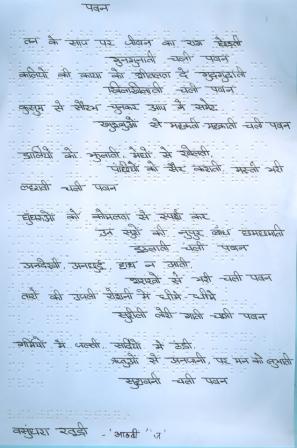 पवन
तन के साथ पर जीवन का राग छेड़ती
गुनगुनाती चली पवन
कलियों की काया को शीतलता दे गुदगुदाती
खिलखिलाती चली पवन
कुसुम से सौरभ चुराकर आप में समेट
खुशबुओं से महकती महकाती चली पवन
डालियों को झुलाती, मेघों से खेलती
पंछियों को सैर कराती, मस्ती भरी
लहराती चली पवन
घुंघरुओं को कोमलता से स्पर्श कर
उन सुरों की नुपुर बांध छमछमाती
इठलाती चली पवन
अनदेखी, अनछुई, हाथ न आती
से भरी चली पवन
तारों की उजली रोशनी में धीमे धीमे
सुरीली लोरी गाती चली पवन
गर्मियों में जलती, सर्दियों में ठंडी
ऋतुओं से अनजानी, पर मन को लुभाती
सुहावनी चली पवन
वसुंधरा रतूड़ी - 'आठवीं' 'ज'